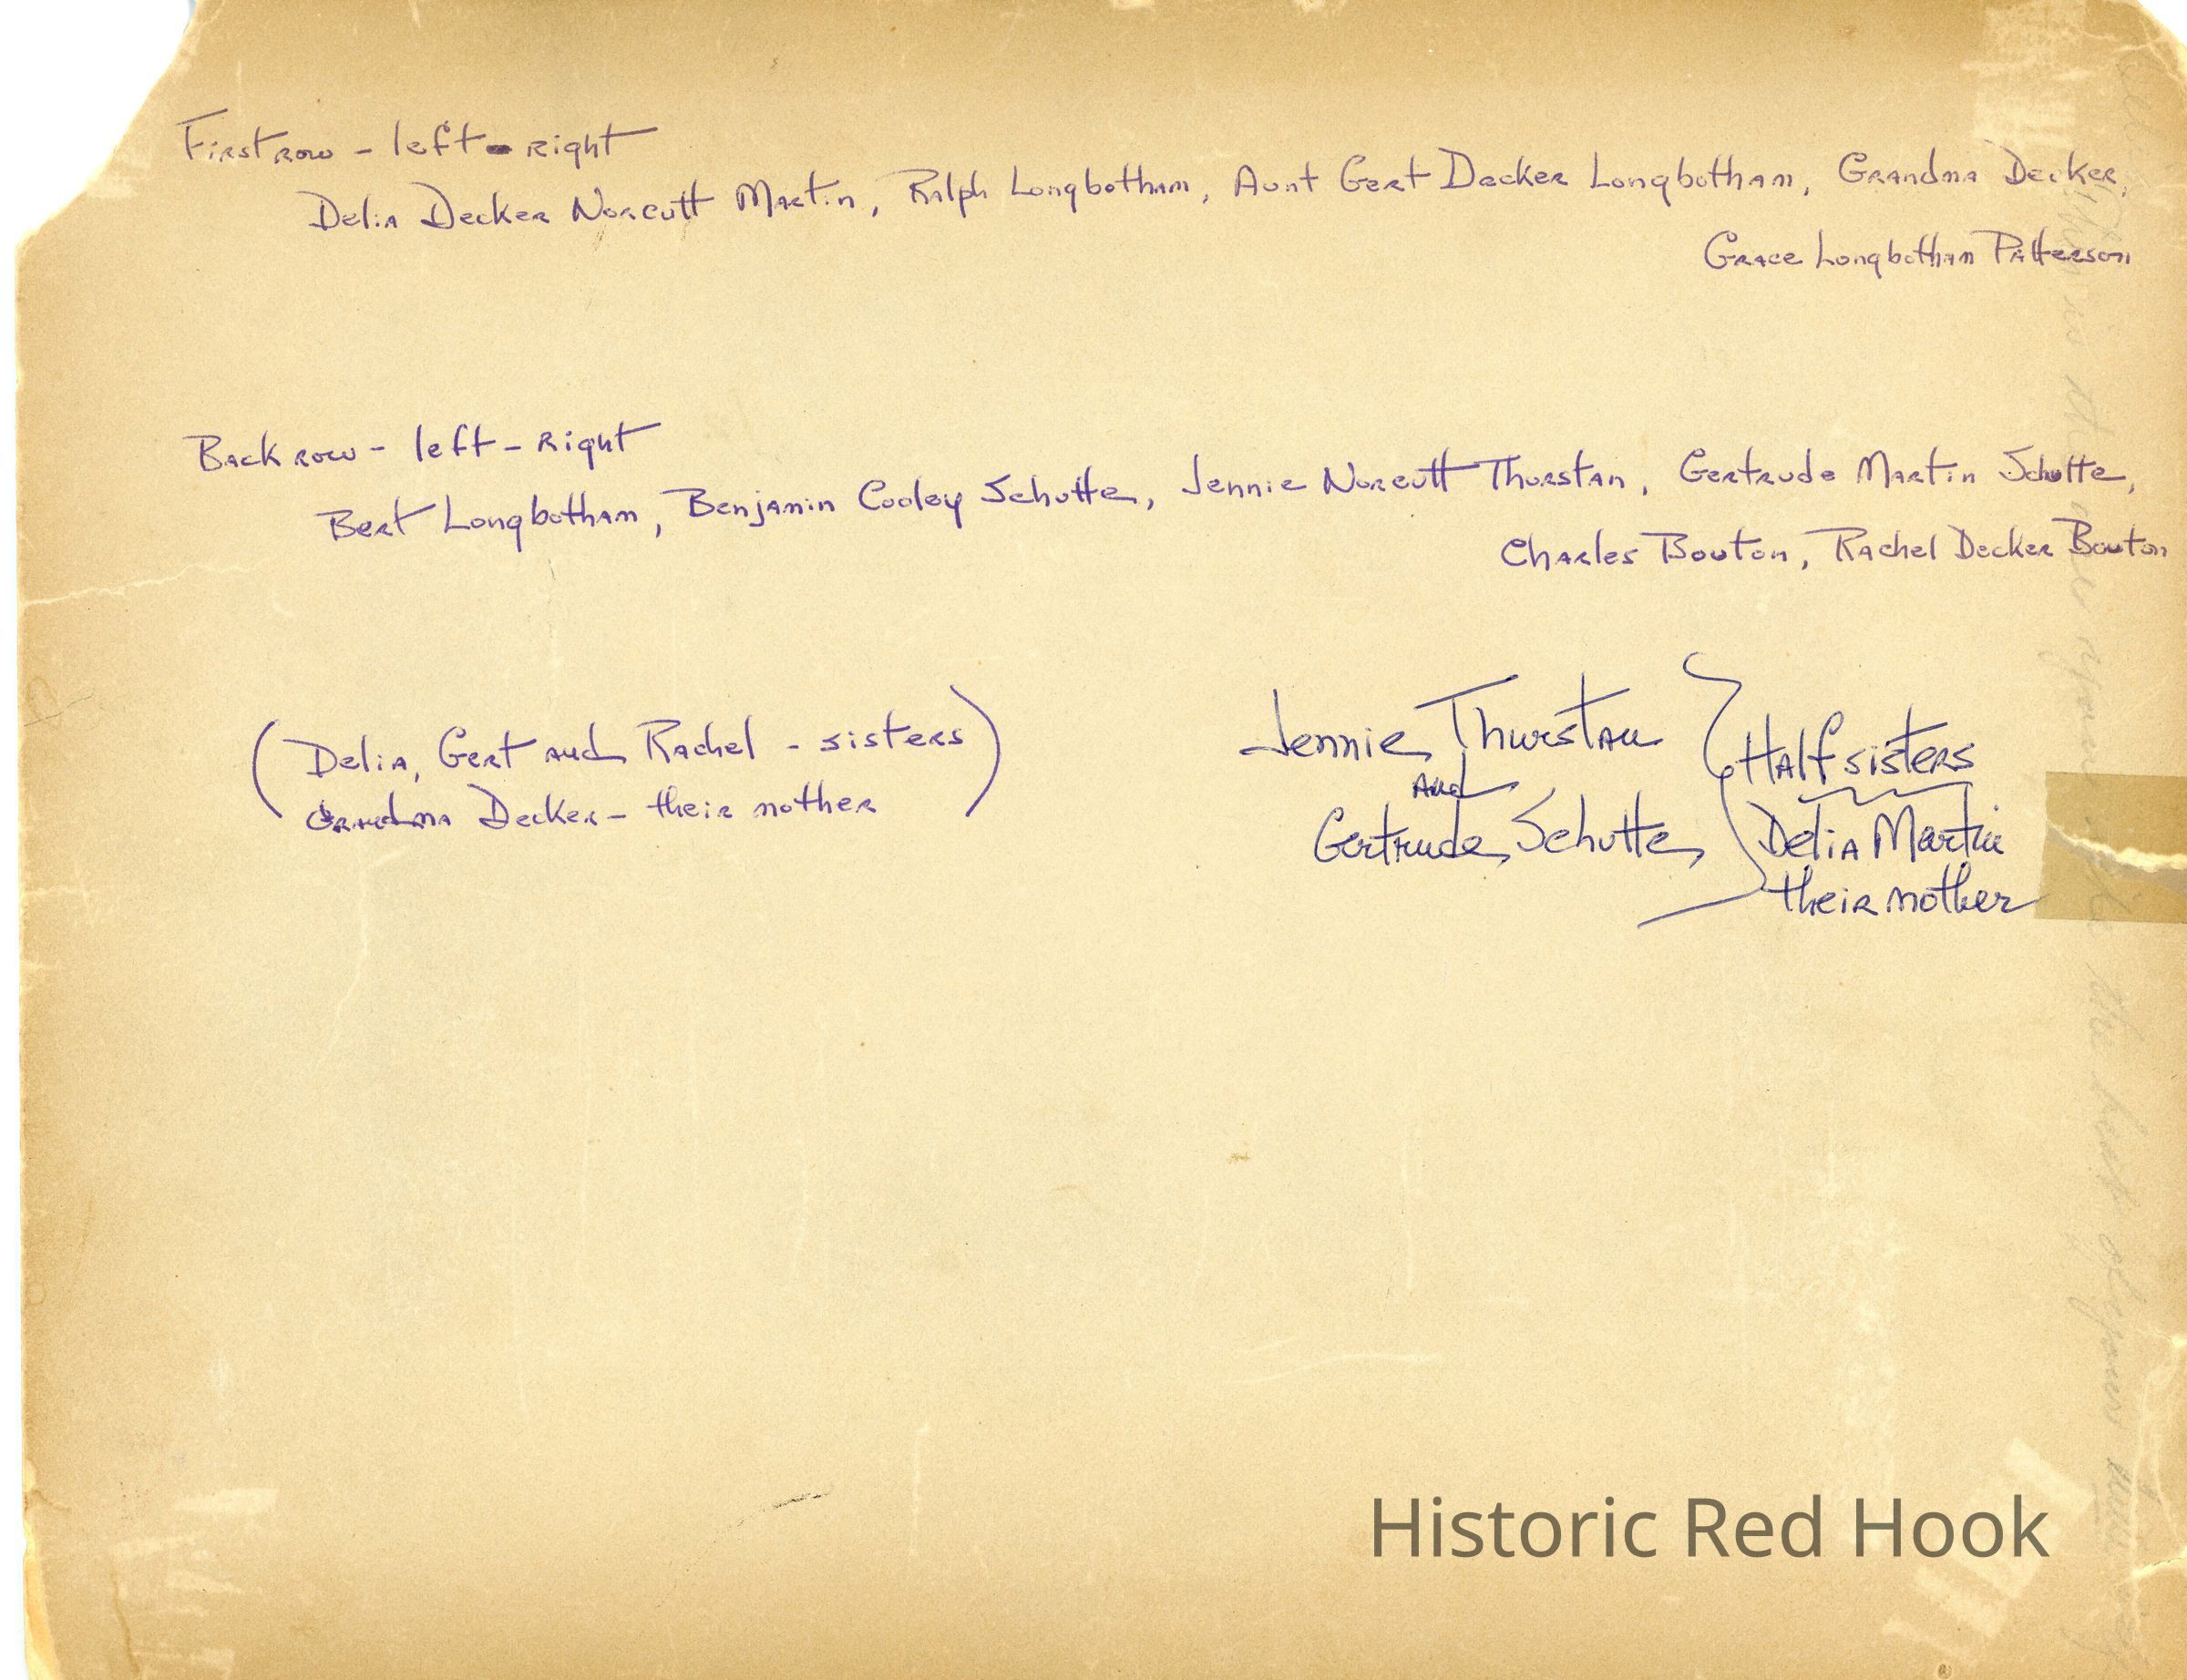 First row - left - right
Delia Decker Norcutt Martin, Ralph Longbotham, Aunt Gert Decker Longbotham, Grandma Decker,
Grace Longbotham Patterson
Back row - left - Right
Bert Longbotham, Benjamin Cooley Schutte, Jennie Norcutt Thurstan, Gertrude Martin Schutte,
Charles Bouton, Rachel Decker Bouton
(Delia, Gert and Rachel - sisters
Grandma Decker - their mother)
Jennie Thurstan
and
Gertrude Schutte
Half sisters
Delia Martin
their mother
Historic Red Hook